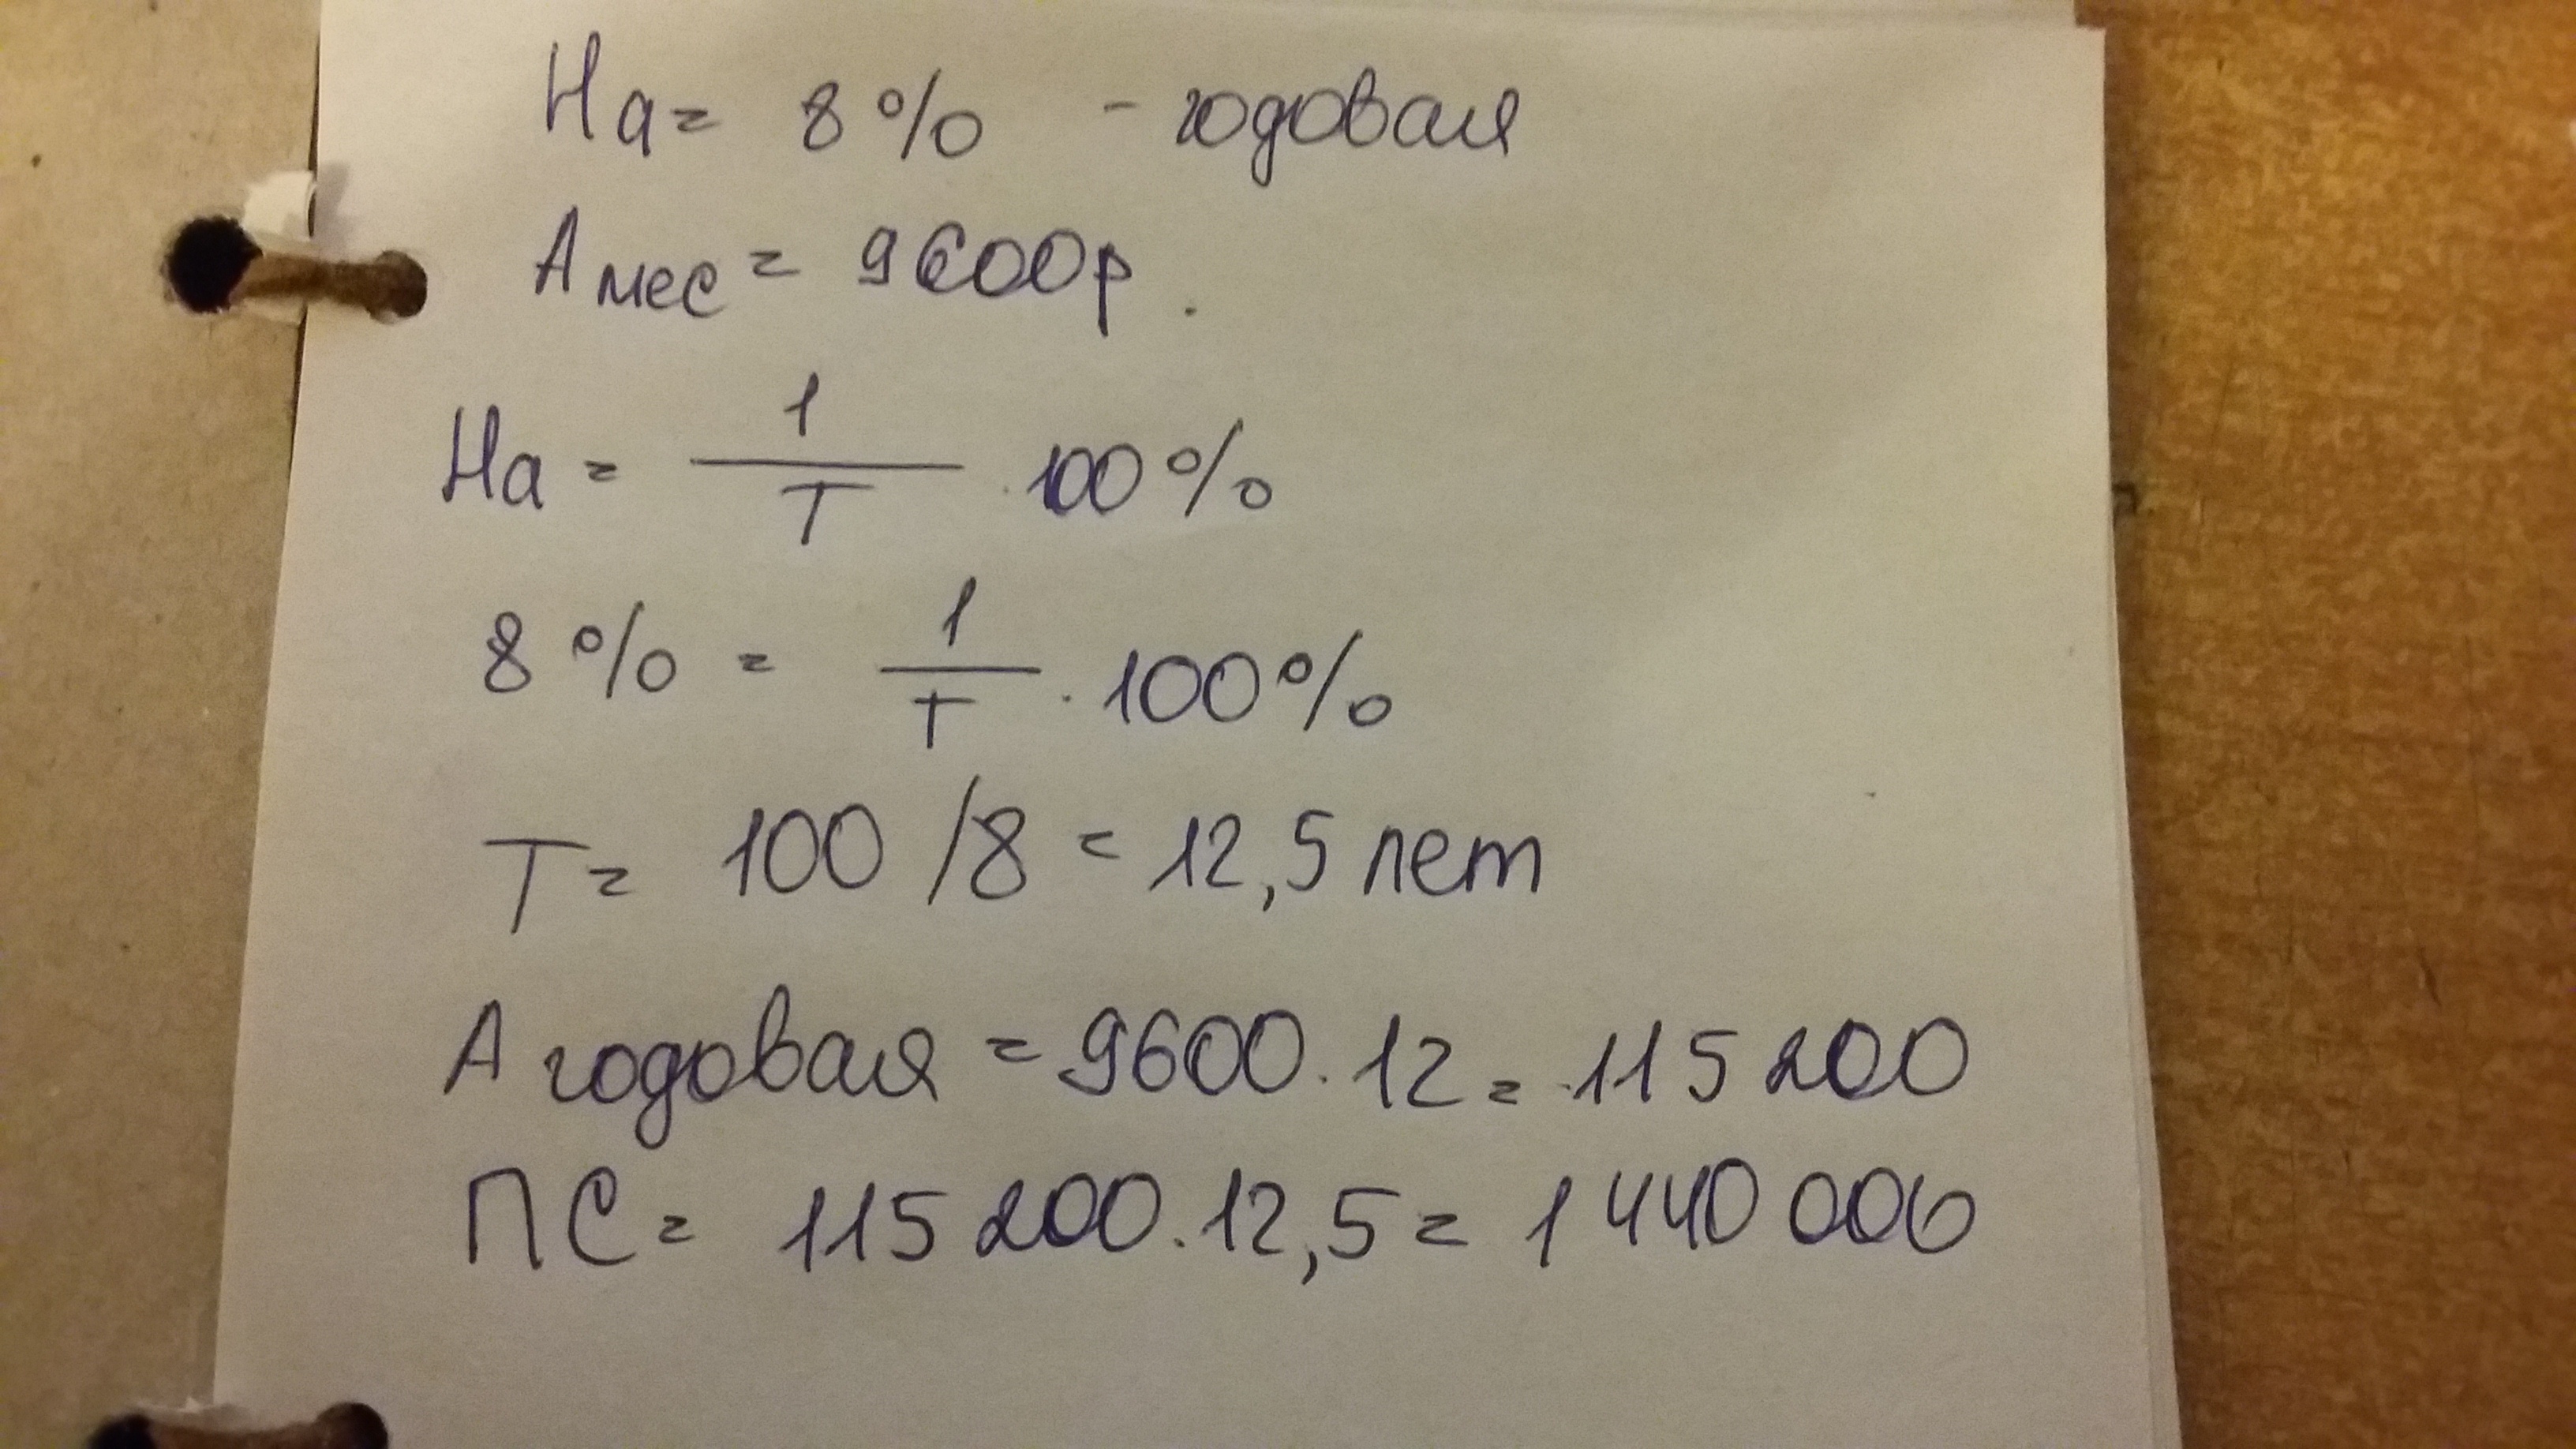 На = 8% - годовая
А мес = 9600р.
На = 1/T · 100%
8% = 1/T · 100%
T = 100/8 = 12,5 лет
А годовая = 9600 · 12 = 115 200
ПС = 115 200 · 12,5 = 1 440 000